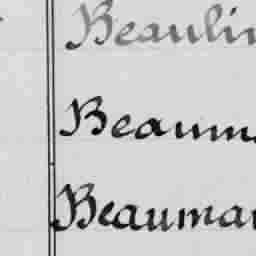 Beaulin
Beaum
Beauman